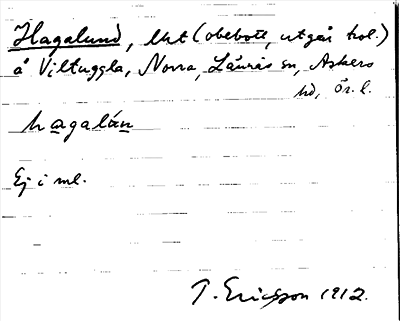 Hagalund, lht (obebott, utgår trol.)
å Viltuggla, Norra, Lännäs sn, Askers
hd, Ör. l.
hagalán
Ej i ml.
T. Ericsson 1912.